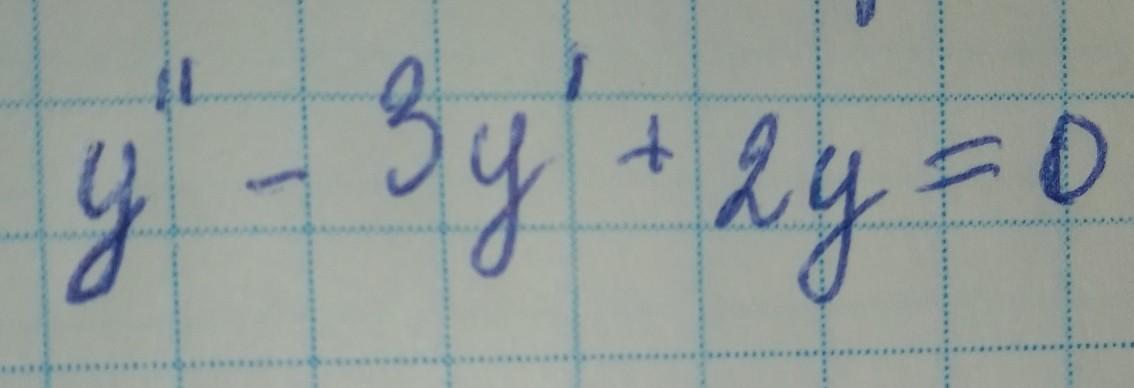 y'' - 3y' + 2y = 0